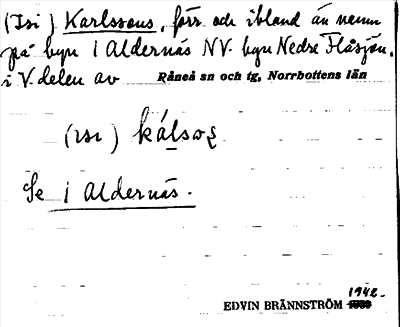 (Isi) Karlssons, förr och ibland än namn
på byn 1 Aldernäs NV. byn Nedre Flåsjön.
i V. delen av Råneå sn och tg, Norrbottens län
(ısı) kálsoʂ
Se 1 Aldernäs.
1942.
EDVIN BRÄNNSTRÖM